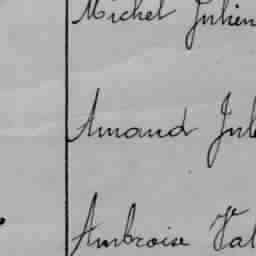 Michel Julien
Amand Jul
Ambroise Val